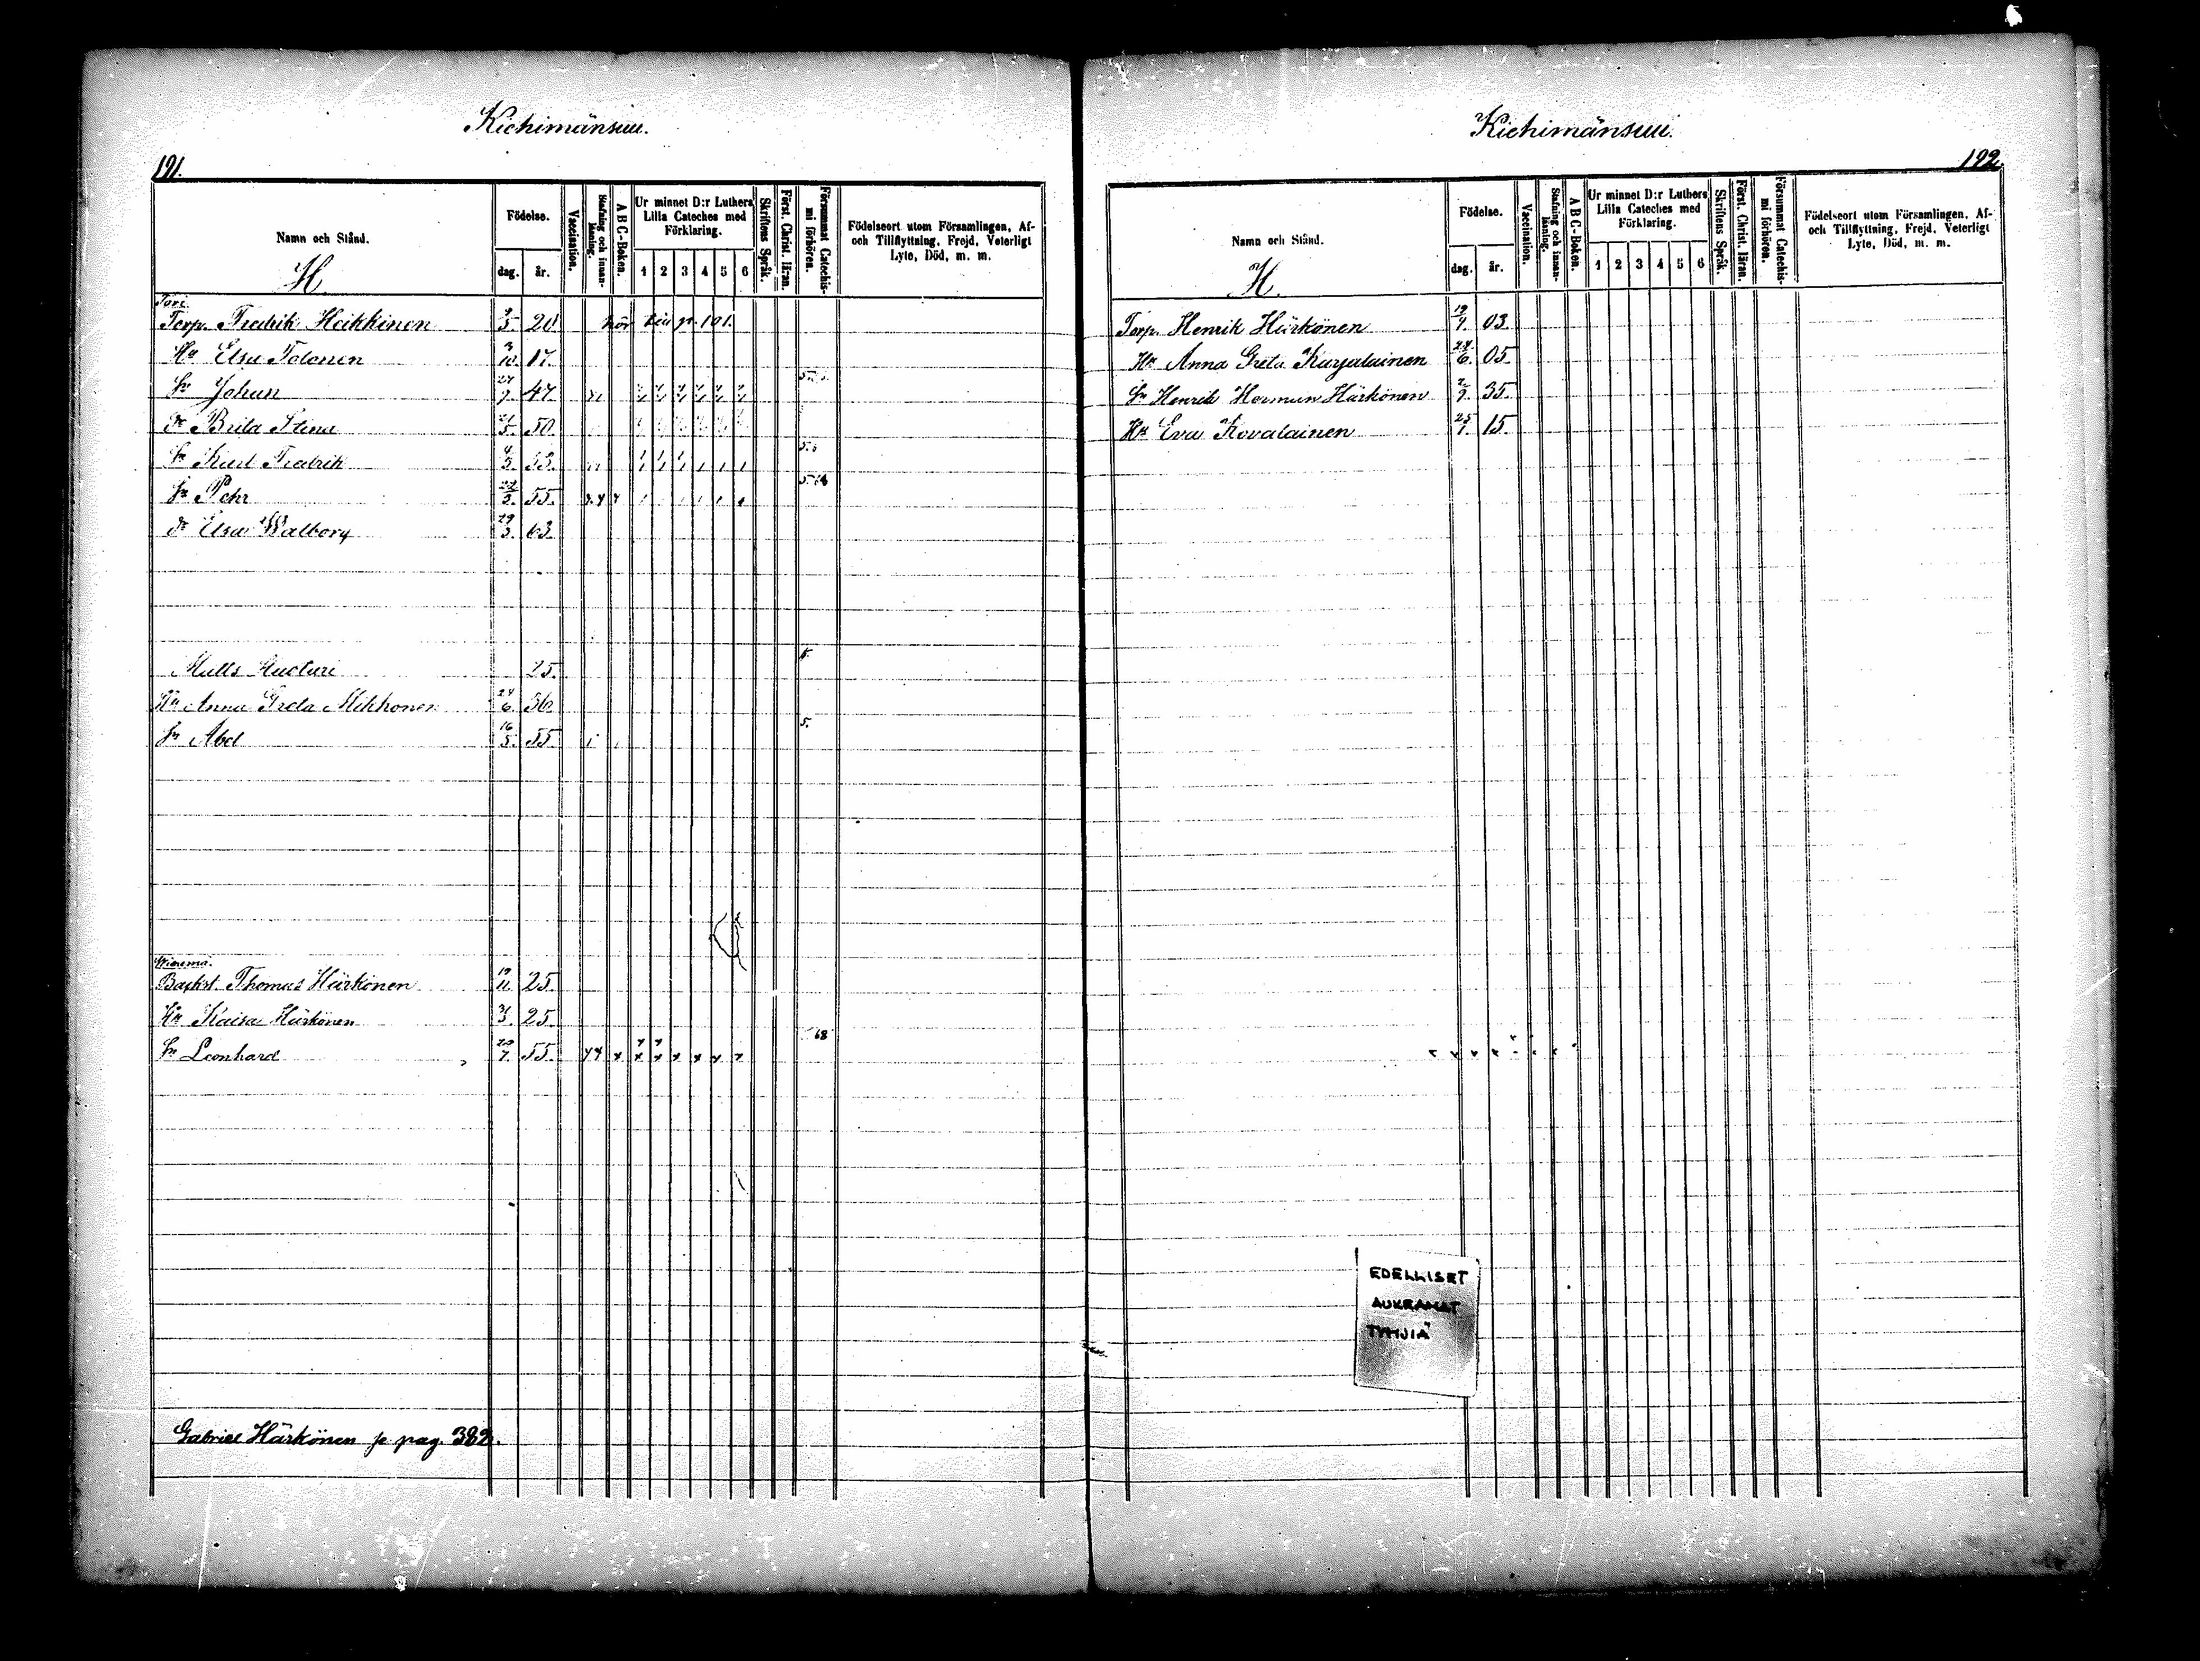 Kiehimänsuu.
191.
Namn och Stånd.
H.
Födelse.
dag.
år.
Vaccination.
Stafning och innan-läsning.
A B C-Boken.
Ur minnet D:r Luthers
Lilla Cateches med
Förklaring.
1 2 3 4 5 6
Skriftens Språk.
Först. Christ. läran.
Försummat Catechis-
mi förhören.
Födelseort utom Församlingen, Af-
och Tillflyttning, Frejd, Veterligt
Lyte, Död, m. m.
Torp. Fredrik Heikkinen 9/5 20
Hu Elsa Tolonen 3/10 17.
Sn Johan 27/7 47.
Dr Brita Stina 21/5 50.
Sn Karl Fredrik 4/3 53.
Sn Pehr 22/3. 55.
Dr Elsa Walborg 29/3. 63.
Matts 25.
Hu Anna Greta Mikkonen 24/6. 36
Sn Abel 16/5. 55.
Backst. Thomas Härkönen 19/11. 25.
Hu Kaisa Härkönen 25.
68
Sn Leonhard 20/7. 55.
Gabriel Härkönen se pag. 382.
Kiehimänsuu.
192.
Namn och Stånd.
H.
Födelse.
dag.
år.
Vaccination.
Stafning och innan-läsning.
A B C-Boken.
Ur minnet D:r Luthers
Lilla Cateches med
Förklaring.
1 2 3 4 5 6
Skriftens Språk.
Först. Christ. läran.
Försummat Catechis-
mi förhören.
Födelseort utom Församlingen, Af-
och Tillflyttning, Frejd, Veterligt
Lyte, Död, m. m.
Torp. Henrik Härkönen 19/7. 03.
Hu Anna Greta Karjalainen 24/6. 05.
Sn Henrik Herman Härkönen 2/9. 35.
Hu Eva Kovalainen 25/7. 15.
EDELLISET
AUKEAMAT
TYHJIÄ